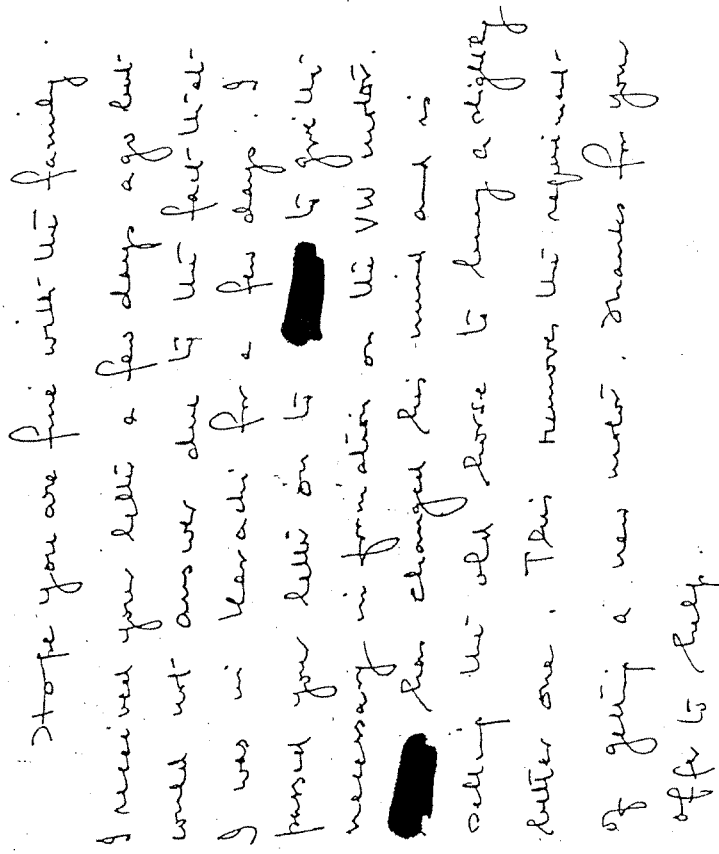 Hope you are fine with the family.
I received your letter a few days ago but
could not answer due to the fact that
I was in Karachi for a few days. I
passed your letter on to to give the
necessary information on the VW motor.
has changed his mind and is
selling the old horse to buy a slightly
better one. This removes the requirement
of getting a new motor. Thanks for your
offer to help.